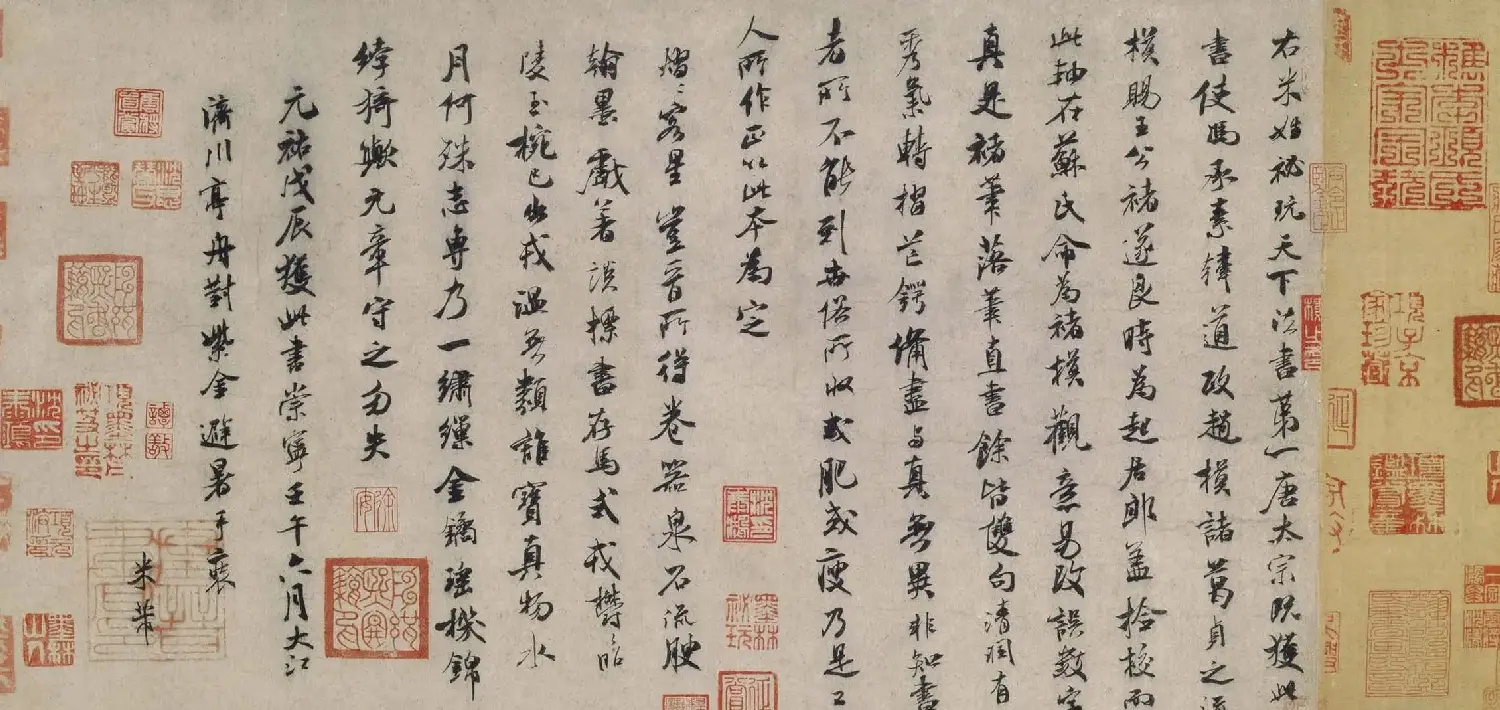 右米姓祕玩天下法書第一唐太宗既獲此
書使馮承素韓道政趙模諸葛貞之流
模賜王公褚遂良時為起居郎蓋撿校而
此軸在蘇氏命為褚模觀意易改誤數字
真是褚筆落筆直書餘皆雙勾清潤有
秀氣轉摺芒鍔備盡與真無異非知書
者所不能到世俗所收或肥或瘦乃是工
人所作正以此本為定
熠〻客星豈晉所得卷器泉石流腴
翰墨戲著談標書存馬式戎鬱昭
陵玉椀已出戎溫無類誰寶真物水
月何殊志專乃一繡繅金鐍瑤機錦
綷猗歟元章守之勿失
元祐戊辰獲此書崇寧壬午六月大江
濟川亭舟對紫金避暑手裝
米芾
項子京家珍藏